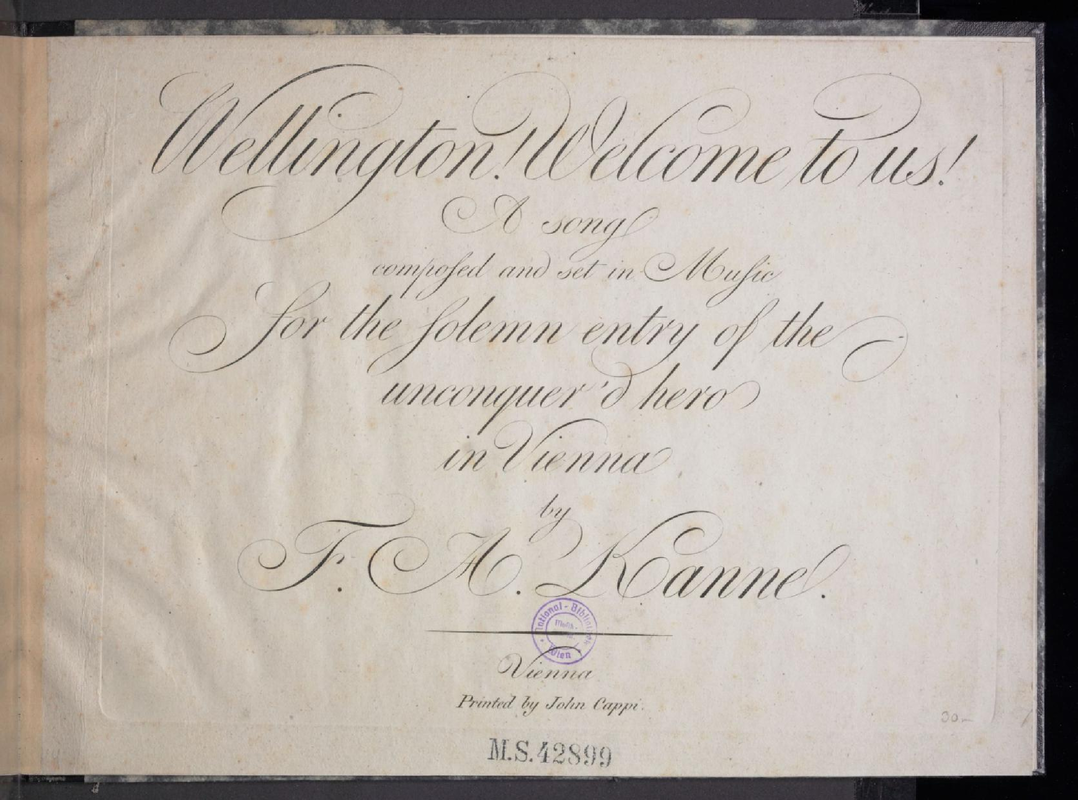 Wellington! Welcome to us!
A song
composed and set in Music
for the solemn entry of the
unconquer'd hero
in Vienna
by
F. A. Kanne.
National-Bibliothek
Wien
Vienna
Printed by John Cappi.
30.—
M.S. 42899